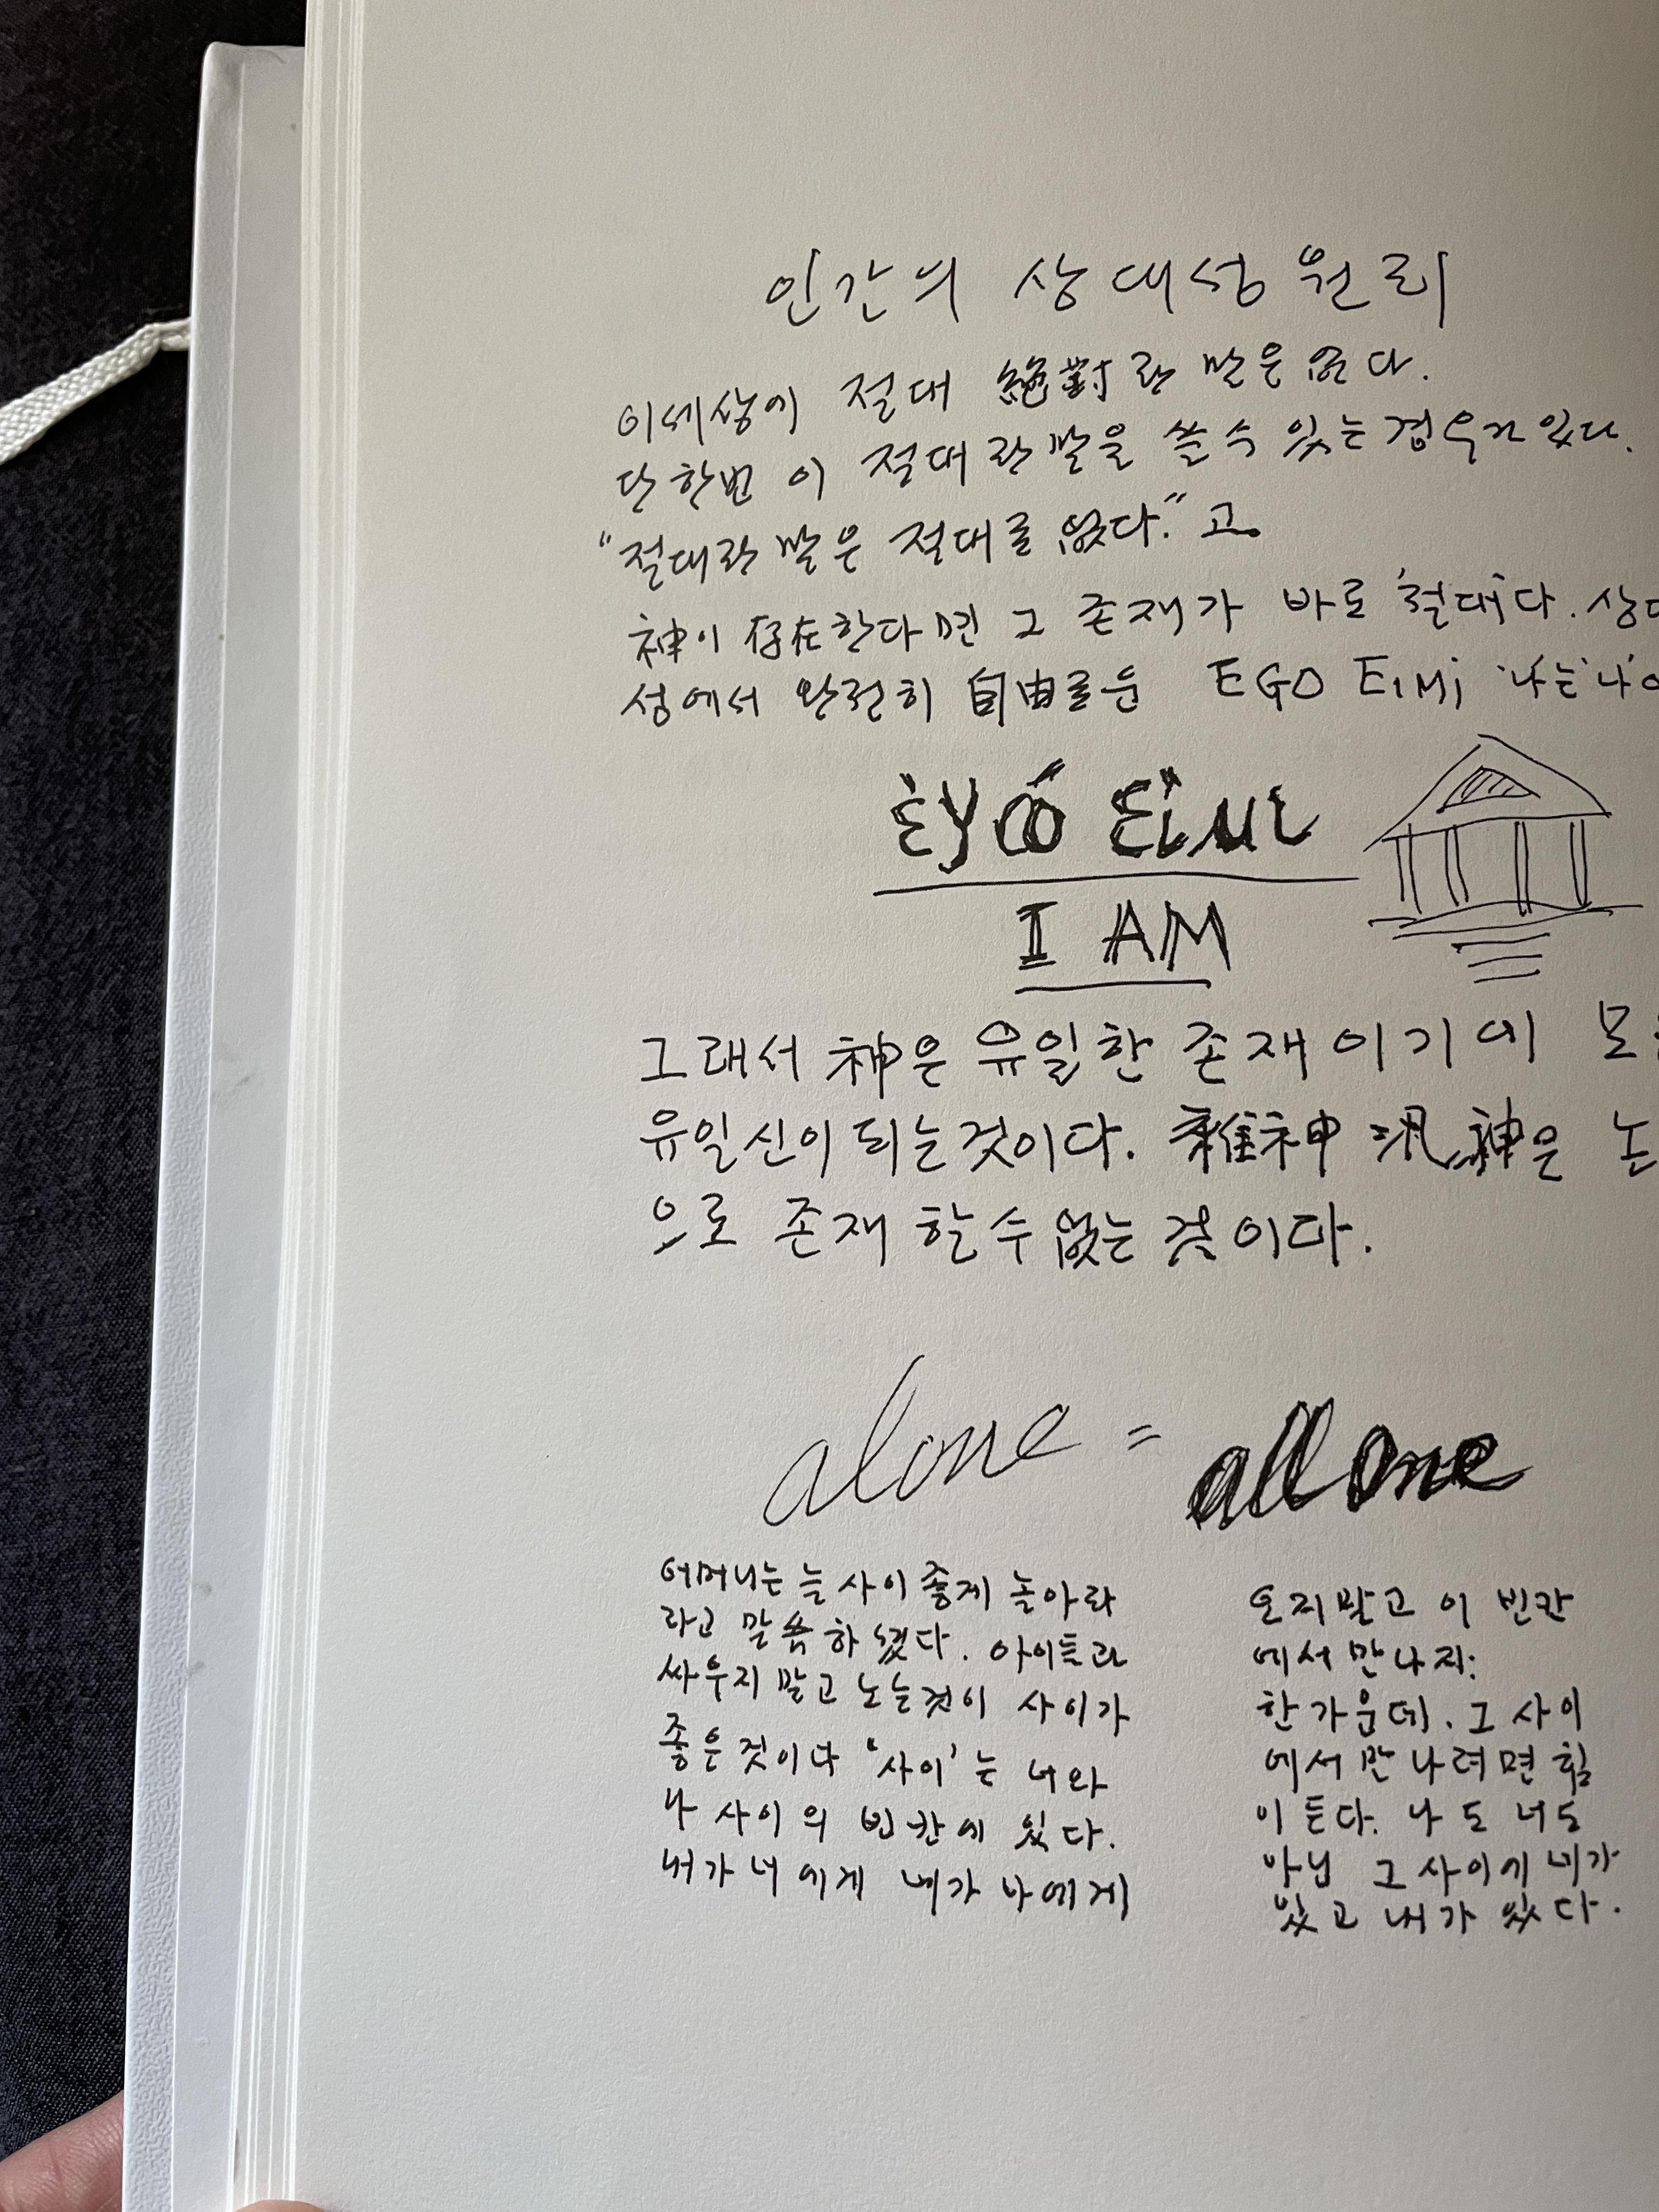 인간의 상대성 원리
이세상에 절대 絶對란 말은 없다.
단 한번 이 절대란말을 쓸 수 있는 경우가 있다.
"절대란 말은 절대로 없다." 고.
神이 存在한다면 그 존재가 바로 '절대'다. 상대
성에서 완전히 自由로운 EGO EiMi '나는 '나이
ἐγώ εἰμι
I AM
그래서 神은 유일한 존재이기에
유일신이 되는것이다. 雜神 汎神은 논
으로 존재 할수없는 것이다.
alone = all one
어머니는 늘 사이좋게 놀아라
라고 말씀하셨다. 아이들과
싸우지 말고 노는것이 사이가
좋은 것이다 '사이'는 너와
나 사이의 빈칸에 있다.
내가 너에게 네가 나에게
오지말고 이 빈칸
에서 만나자:
한가운데. 그 사이
에서 만나려면 힘
이 든다. 나도 너도
아닌 그 사이에 네가
있고 내가 있다.